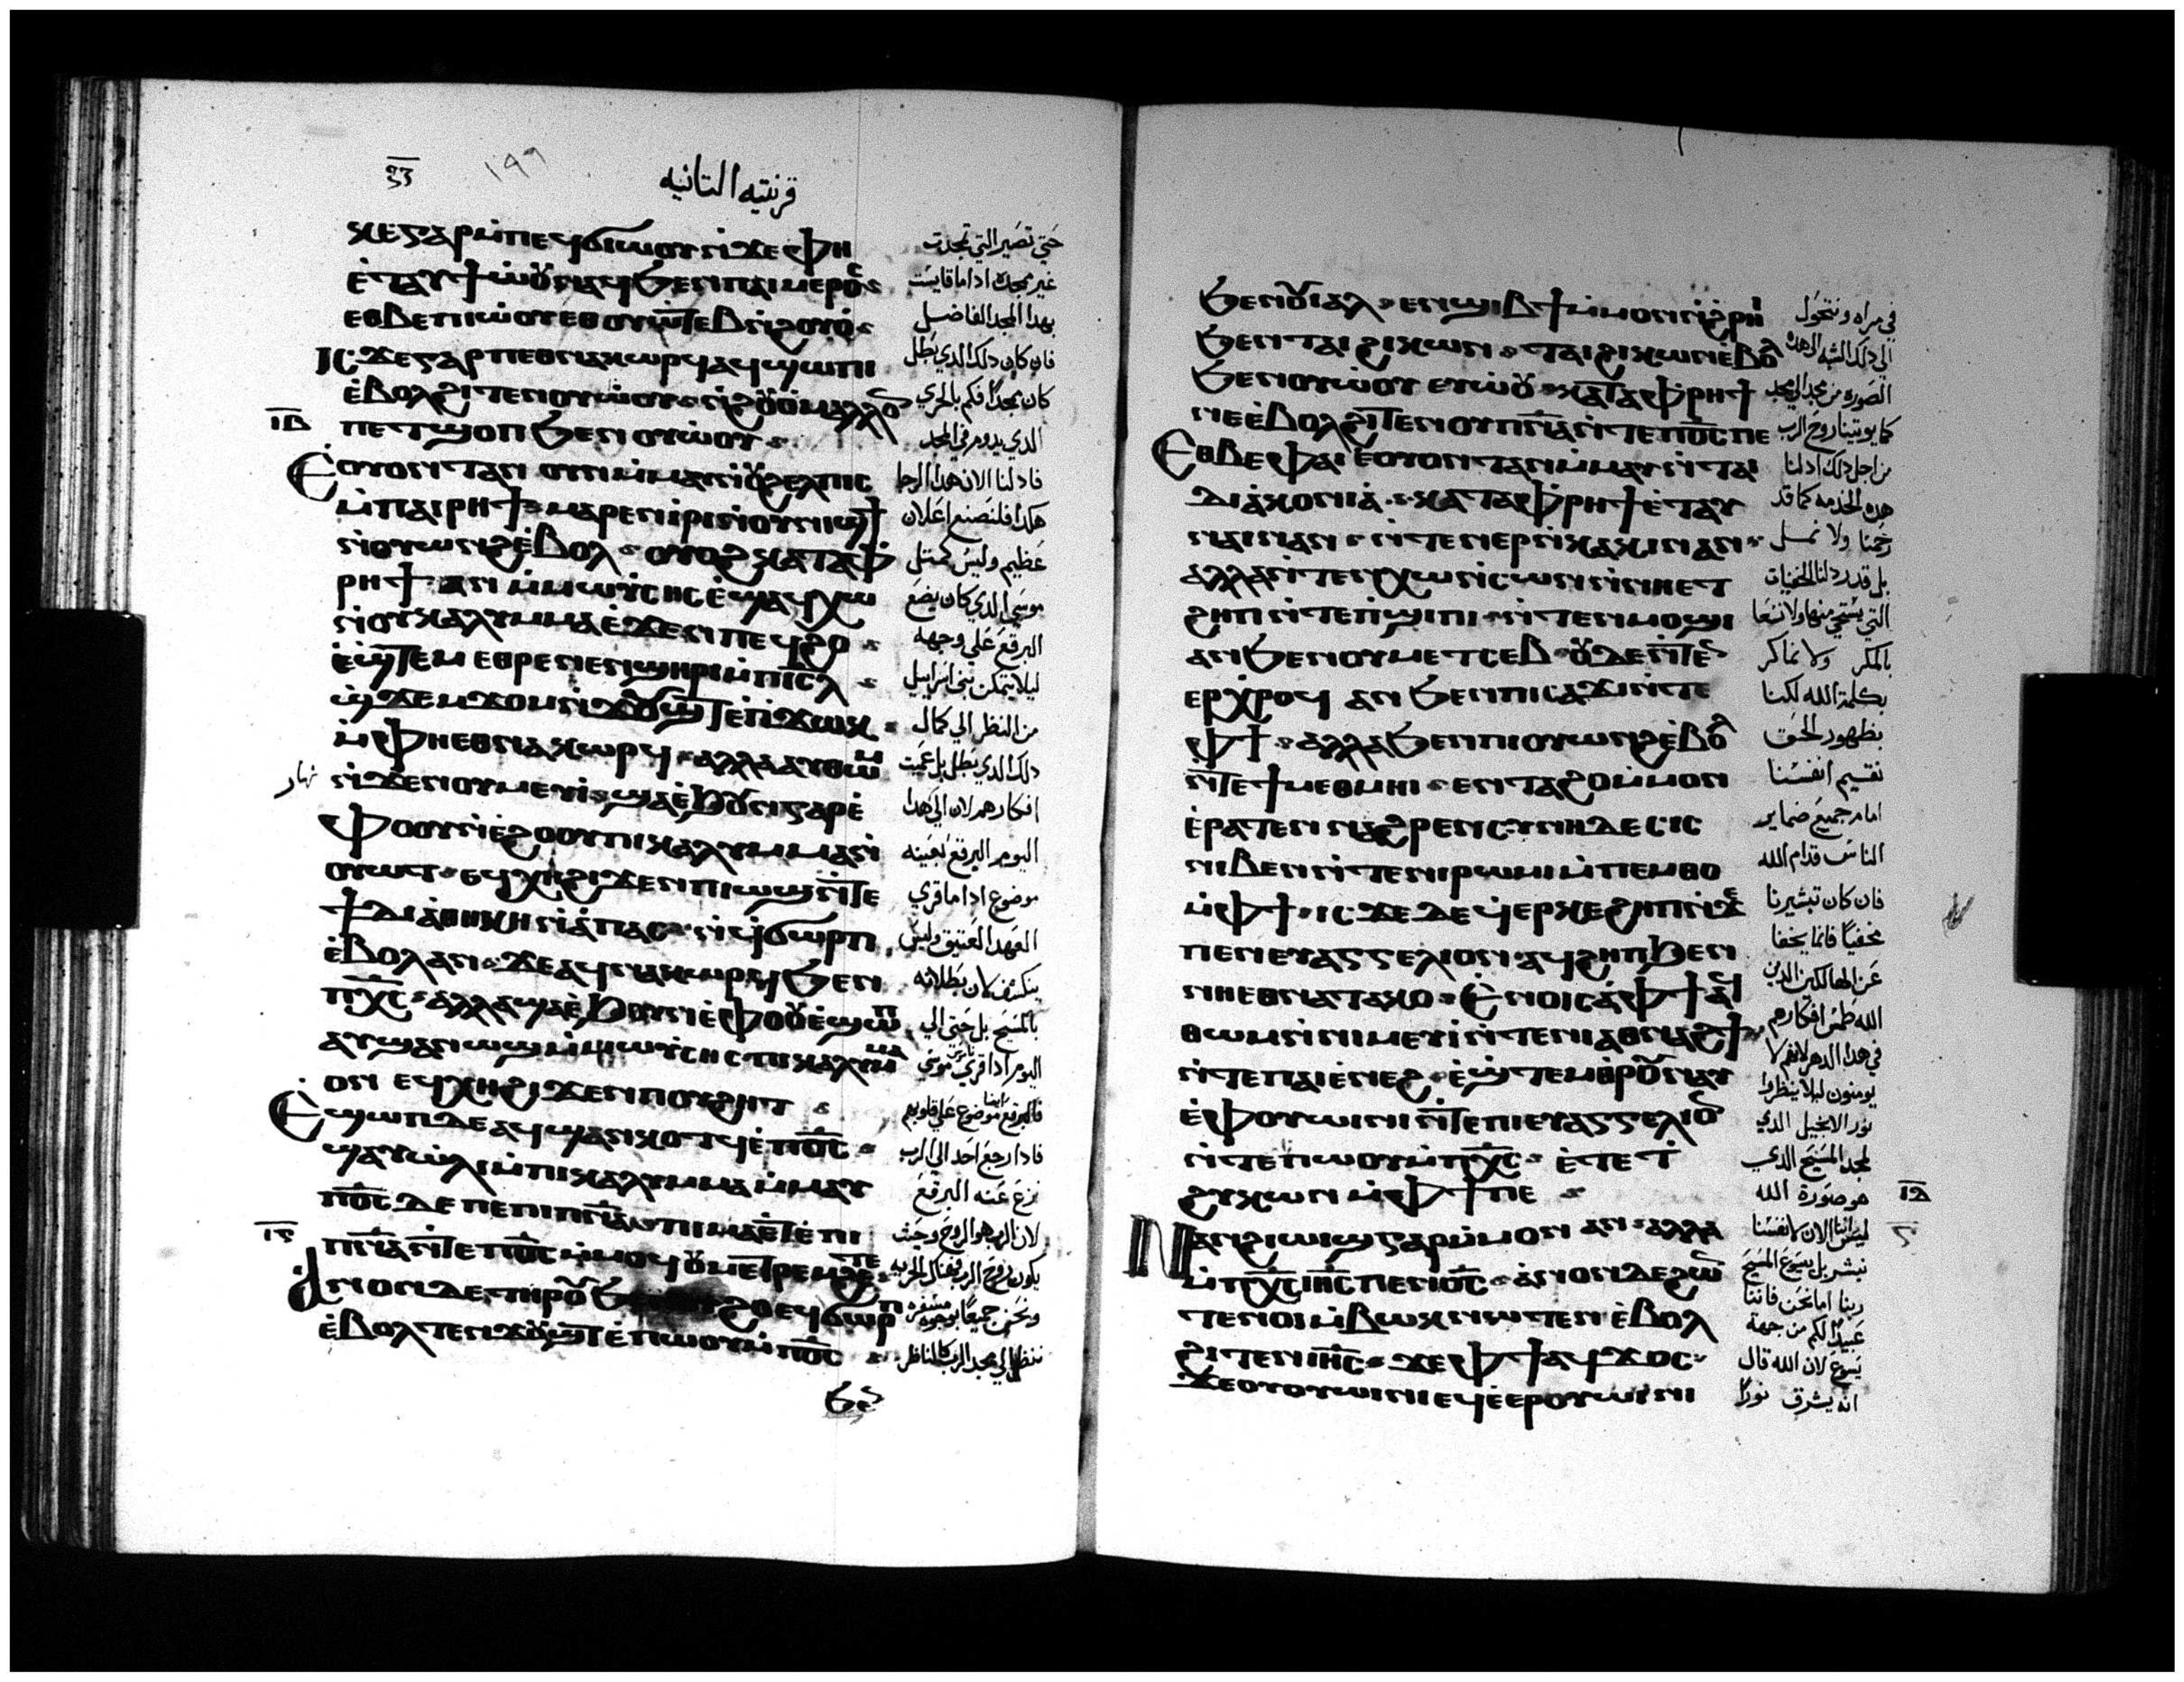 قرنتيه التانيه
١٩٩
ⲕⲉⲅⲁⲣⲙ̀ⲡⲉϥϭⲓⲱⲟⲩⲛ̀ϫⲉⲫⲏ
ⲉ̀ⲧⲁⲩϯⲱ̀ⲟⲩⲛⲁϥϧⲉⲛⲡⲁⲓⲙⲉⲣⲟⲥ
ⲉⲑⲃⲉⲡⲓⲱ̀ⲟⲩⲉⲑⲟⲩⲱⲧⲉⲃⲛ̀ϩⲟⲩⲟ̀
ⲓⲥϫⲉⲅⲁⲣⲡⲉⲑⲛⲁⲕⲱⲣϥⲁϥϣⲱⲡⲓ
ⲉ̀ⲃⲟⲗϩⲓⲧⲉⲛⲟⲩⲱ̀ⲟⲩⲛ̀ϩⲟⲩⲟ̀ⲙⲁⲗⲗⲟⲛ
ⲡⲉⲧϣⲟⲡϧⲉⲛⲟⲩⲱ̀ⲟⲩ
ⲓⲃ
Ⲉⲟⲩⲟⲛⲧⲁⲛ ⲟⲩⲛⲙ̀ⲙⲁⲛ̀ⲟⲩϩⲉⲗⲡⲓⲥ
ⲙ̀ⲡⲁⲓⲣⲏϯⲙⲁⲣⲉⲛⲓ̀ⲣⲓⲛ̀ⲟⲩⲛⲓϣϯ
ⲛ̀ⲟⲩⲱⲛϩⲉ̀ⲃⲟⲗ ⲟⲩⲟϩⲕⲁⲧⲁⲫ̀
ⲣⲏϯ ⲁⲛ ⲙ̀ⲙⲱⲩ̀ⲥⲏⲥⲉ̀ϣⲁϥⲭⲱ
ⲛ̀ⲟⲩⲕⲁⲗⲩⲙⲙⲁⲉ̀ϫⲉⲛⲡⲉϥϩⲟ
ⲉ̀ϣ̀ⲧⲉⲙ ⲉⲑⲣⲉⲛⲉⲛϣⲏⲣⲓⲙ̀ⲡⲓⲥⲗ
ϣ̀ϫⲉⲙϫⲟⲙⲛ̀ϫⲟⲩϣⲧⲉ̀ⲡ̀ϫⲱⲕ
ⲙ̀ⲫⲏⲉⲑⲛⲁⲕⲱⲣϥ ⲁⲗⲗⲁⲁⲩⲑⲱⲙ
ⲛ̀ϫⲉⲛⲟⲩⲙⲉⲩⲓ̀ϣⲁⲉ̀ϧⲟⲩⲛⲅⲁⲣⲉ̀
ⲫⲟⲟⲩⲛ̀ⲉ̀ϩⲟⲟⲩⲡⲓⲕⲁⲗⲩⲙⲙⲁⲛ̀
ⲟⲩⲱⲧ ⲉϥⲭⲏϩⲓϫⲉⲛⲡⲓⲱϣⲛ̀ⲧⲉ
ϯⲇⲓⲁ̀ⲑⲏⲕⲏⲛ̀ⲁ̀ⲡⲁⲥ ⲛ̀ϥ̀ϭⲱⲣⲡ
ⲉ̀ⲃⲟⲗⲁⲛ ϫⲉⲁϥⲛⲁⲕⲱⲣϥϧⲉⲛ
ⲡⲭ̅ⲥ ⲁⲗⲗⲁϣⲁⲉ̀ϧⲟⲩⲛⲉ̀ⲫⲟⲟⲩⲉ̀ϣⲱⲡ
ⲁⲩϣⲁⲛⲱϣⲙ̀ⲙⲱⲩ̀ⲥⲏⲥⲡⲓⲕⲁⲗⲩⲙⲙⲁ
ⲟⲛ ⲉϥⲭⲏϩⲓϫⲉⲛⲡⲟⲩϩⲏⲧ
Ⲉ̀ϣⲱⲡⲇⲉⲁϥϣⲁⲛⲕⲟⲧϥⲉ̀ⲡ̅ⲟ̅ⲥ
ϣⲁⲩⲱ̀ⲗⲓⲙ̀ⲡⲓⲕⲁⲗⲩⲙⲙⲁⲙ̀ⲙⲁⲩ
ⲡ̅ⲟ̅ⲥ ⲇⲉ ⲡⲉⲡⲓⲡ̅ⲛ̅ⲁ̅ ⲡⲓⲙⲁⲉ̀ⲧⲉⲡⲓ
ⲓⲅ
ⲡ̅ⲛ̅ⲁ̅ⲛ̀ⲧⲉⲡ̅ⲟ̅ⲥⲙ̀ⲙⲟϥⲟⲩⲙⲉⲧⲣⲉⲙϩⲉⲧⲉ
Ⲁⲛⲟⲛⲇⲉⲧⲏⲣⲟⲩϧⲉⲛ ϩⲟⲉϥϭⲱⲣⲡ
ⲉ̀ⲃⲟⲗⲧⲉⲛϫⲟⲩϣⲧⲉ̀ⲡⲱⲟⲩⲙ̀ⲡ̅ⲟ̅ⲥ
ϧⲉⲛ
حتي تصير التي تمجدت
غير ممجده اذا ما قايست
بهدا المجد الفاضل
فان كان دلك الدي بطل
كان بمجد افكم بالحري
الدي يدوم في المجد
فاد لنا الان هدا الرجا
هكدا فلنصنع اعلان
عظيم وليس كمتل
موسي الدي كان يضع
البرقع علي وجهه
ليلا يتمكن بني اسراييل
من النظر الي كمال
دلك الدي بطل بل عميت
افكارهم لان الي هدا
نهار
اليوم البرقع بعينه
موضوع ادا ما قري
العهد العتيق وليس
ينكشف لان بطلانه
بالمسيح بل حتي الي
اليوم ادا قري موسي
فالبرقع ايضا موضوع علي قلوبهم
فادا رجع احد الي الرب
نزع عنه البرقع
لان الرب هو الروح وحيث
يكون روح الرب فهناك الحريه
ونحن جميعا بوجوه مسفره
ننظر الي مجد الرب كالناظر
ϧⲉⲛⲟⲩⲓⲁⲗ ⲉⲛϣⲓⲃϯⲙ̀ⲙⲟⲛⲛ̀ϩ̀ⲣⲏⲓ
ϧⲉⲛⲧⲁⲓϩⲓⲕⲱⲛ ⲧⲁⲓϩⲓⲕⲱⲛⲉ̀ⲃⲟⲗ
ϧⲉⲛⲟⲩⲱ̀ⲟⲩ ⲉⲩⲱ̀ⲟⲩ ⲕⲁⲧⲁⲫ̀ⲣⲏϯ
ⲛⲉⲉ̀ⲃⲟⲗϩⲓⲧⲉⲛⲟⲩⲡ̅ⲛ̅ⲁ̅ⲛ̀ⲧⲉⲡ̅ⲟ̅ⲥⲡⲉ
Ⲉⲑⲃⲉⲫⲁⲓ ⲉⲟⲩⲟⲛⲧⲁⲛⲙ̀ⲙⲁⲩⲛ̀ⲧⲁⲓ
ⲇⲓⲁ̀ⲕⲟⲛⲓⲁ̀ ⲕⲁⲧⲁⲫ̀ⲣⲏϯⲉ̀ⲧⲁⲩ
ⲛⲁⲓⲛⲁⲛ ⲛ̀ⲧⲉⲛⲉⲣⲛ̀ⲕⲁⲕⲓⲛⲁⲛ
ⲁⲗⲗⲁⲛ̀ⲧⲉⲛⲭⲱⲛ̀ⲥⲱⲛⲛ̀ⲛⲏⲉⲧ
ϩⲏⲡⲛ̀ⲧⲉⲡ̀ϣⲓⲡⲓ ⲛ̀ⲧⲉⲛⲙⲟϣⲓ
ⲁⲛϧⲉⲛⲟⲩⲙⲉⲧⲥⲉⲃ ⲟⲩⲇⲉⲛ̀ⲧⲉⲛ
ⲉⲣⲭ̀ⲣⲟϥ ⲁⲛ ϧⲉⲛⲡⲓⲥⲁϫⲓⲛ̀ⲧⲉ
ⲫϯ ⲁⲗⲗⲁϧⲉⲛⲡⲓⲟⲩⲱⲛϩⲉ̀ⲃⲟⲗ
ⲛ̀ⲧⲉϯⲙⲉⲑⲙⲏⲓ ⲉⲛⲧⲁϩⲟⲙ̀ⲙⲟⲛ
ⲉ̀ⲣⲁⲧⲉⲛ ⲛⲁϩⲣⲉⲛⲥⲩⲛⲏⲇⲉⲥⲓⲥ
ⲛⲓⲃⲉⲛⲛ̀ⲧⲉⲛⲓⲣⲱⲙⲓⲙ̀ⲡⲉⲙⲑⲟ
ⲙ̀ⲫϯ ⲓⲥϫⲉⲇⲉϥ̀ⲉⲣⲕⲉϩⲏⲡⲛ̀ϫⲉ
ⲡⲉⲛⲉⲩⲁⲅⲅⲉⲗⲓⲟⲛ ⲁϥϩⲏⲡϧⲉⲛ
ⲛⲏⲉⲑⲛⲁⲧⲁⲕⲟ Ⲉ̀ⲛⲟⲓⲥⲁ̀ⲫϯⲁϥ
ⲑⲱⲙⲛ̀ⲛⲓⲙⲉⲩⲓ̀ⲛ̀ⲧⲉⲛⲓⲁⲑⲛⲁϩϯ
ⲛ̀ⲧⲉⲡⲁⲓⲉ̀ⲛⲉϩ ⲉ̀ϣ̀ⲧⲉⲙⲑⲣⲟⲩⲛⲁⲩ
ⲉ̀ⲫⲟⲩⲱⲓⲛⲓⲛ̀ⲧⲉⲡⲓⲉⲩⲁⲅⲅⲉⲗⲓⲟⲛ
ⲛ̀ⲧⲉⲡⲱⲟⲩⲙ̀ⲡⲭ̅ⲥ ⲉ̀ⲧⲉⲧ̀
ϩⲩⲕⲱⲛ ⲙ̀ⲫϯⲡⲉ
Ⲛⲁⲛϩⲓⲱⲓϣⲅⲁⲣⲙ̀ⲙⲟⲛ ⲁⲛ ⲁⲗⲗⲁ
ⲙ̀ⲡⲭ̅ⲥⲓⲏ̅ⲥⲡⲉⲛⲟ̅ⲥ ⲁ̀ⲛⲟⲛⲇⲉϩⲱⲛ
ⲧⲉⲛⲟⲓⲙ̀ⲃⲱⲕⲛⲱⲧⲉⲛ ⲉ̀ⲃⲟⲗ
ϩⲓⲧⲉⲛⲓⲏ̅ⲥ ϫⲉⲫϯⲁϥϫⲟⲥ
ϫⲉⲟⲩⲟⲩⲱⲓⲛⲓⲉϥⲉ̀ⲉⲣⲟⲩⲱⲓⲛⲓ
في مراه ونتحول
الي دلك الشبه الي هده
الصوره من مجد الي مجد
كما يوتينا روح الرب
من اجل دلك اد لنا
هده الخدمه كما قد
رحمنا ولا نمل
بل قدر دلنا الخفيات
التي يستحي منها ولا نسعا
بالمكر ولا نماكر
بكلمة الله لكنا
بظهور الحق
نقسيم انفسنا
امام جميع ضماير
الناس قدام الله
فان كان تبشيرنا
مخفيا فانما يخفا
عن الهالكين الدين
الله طمس افكارهم
في هدا الدهر لانهم لا
يومنون ليلا ينظروا
نور الانجيل الدي
لمجد المسيح الدي
هو صورة الله
ليس اننا الان لانفسنا
نبشر بل بيسوع المسيح
ربنا اما نحن فاننا
عبيدا لكم من جهة
يسوع لان الله قال
انه يشرق نورا
ⲓⲇ